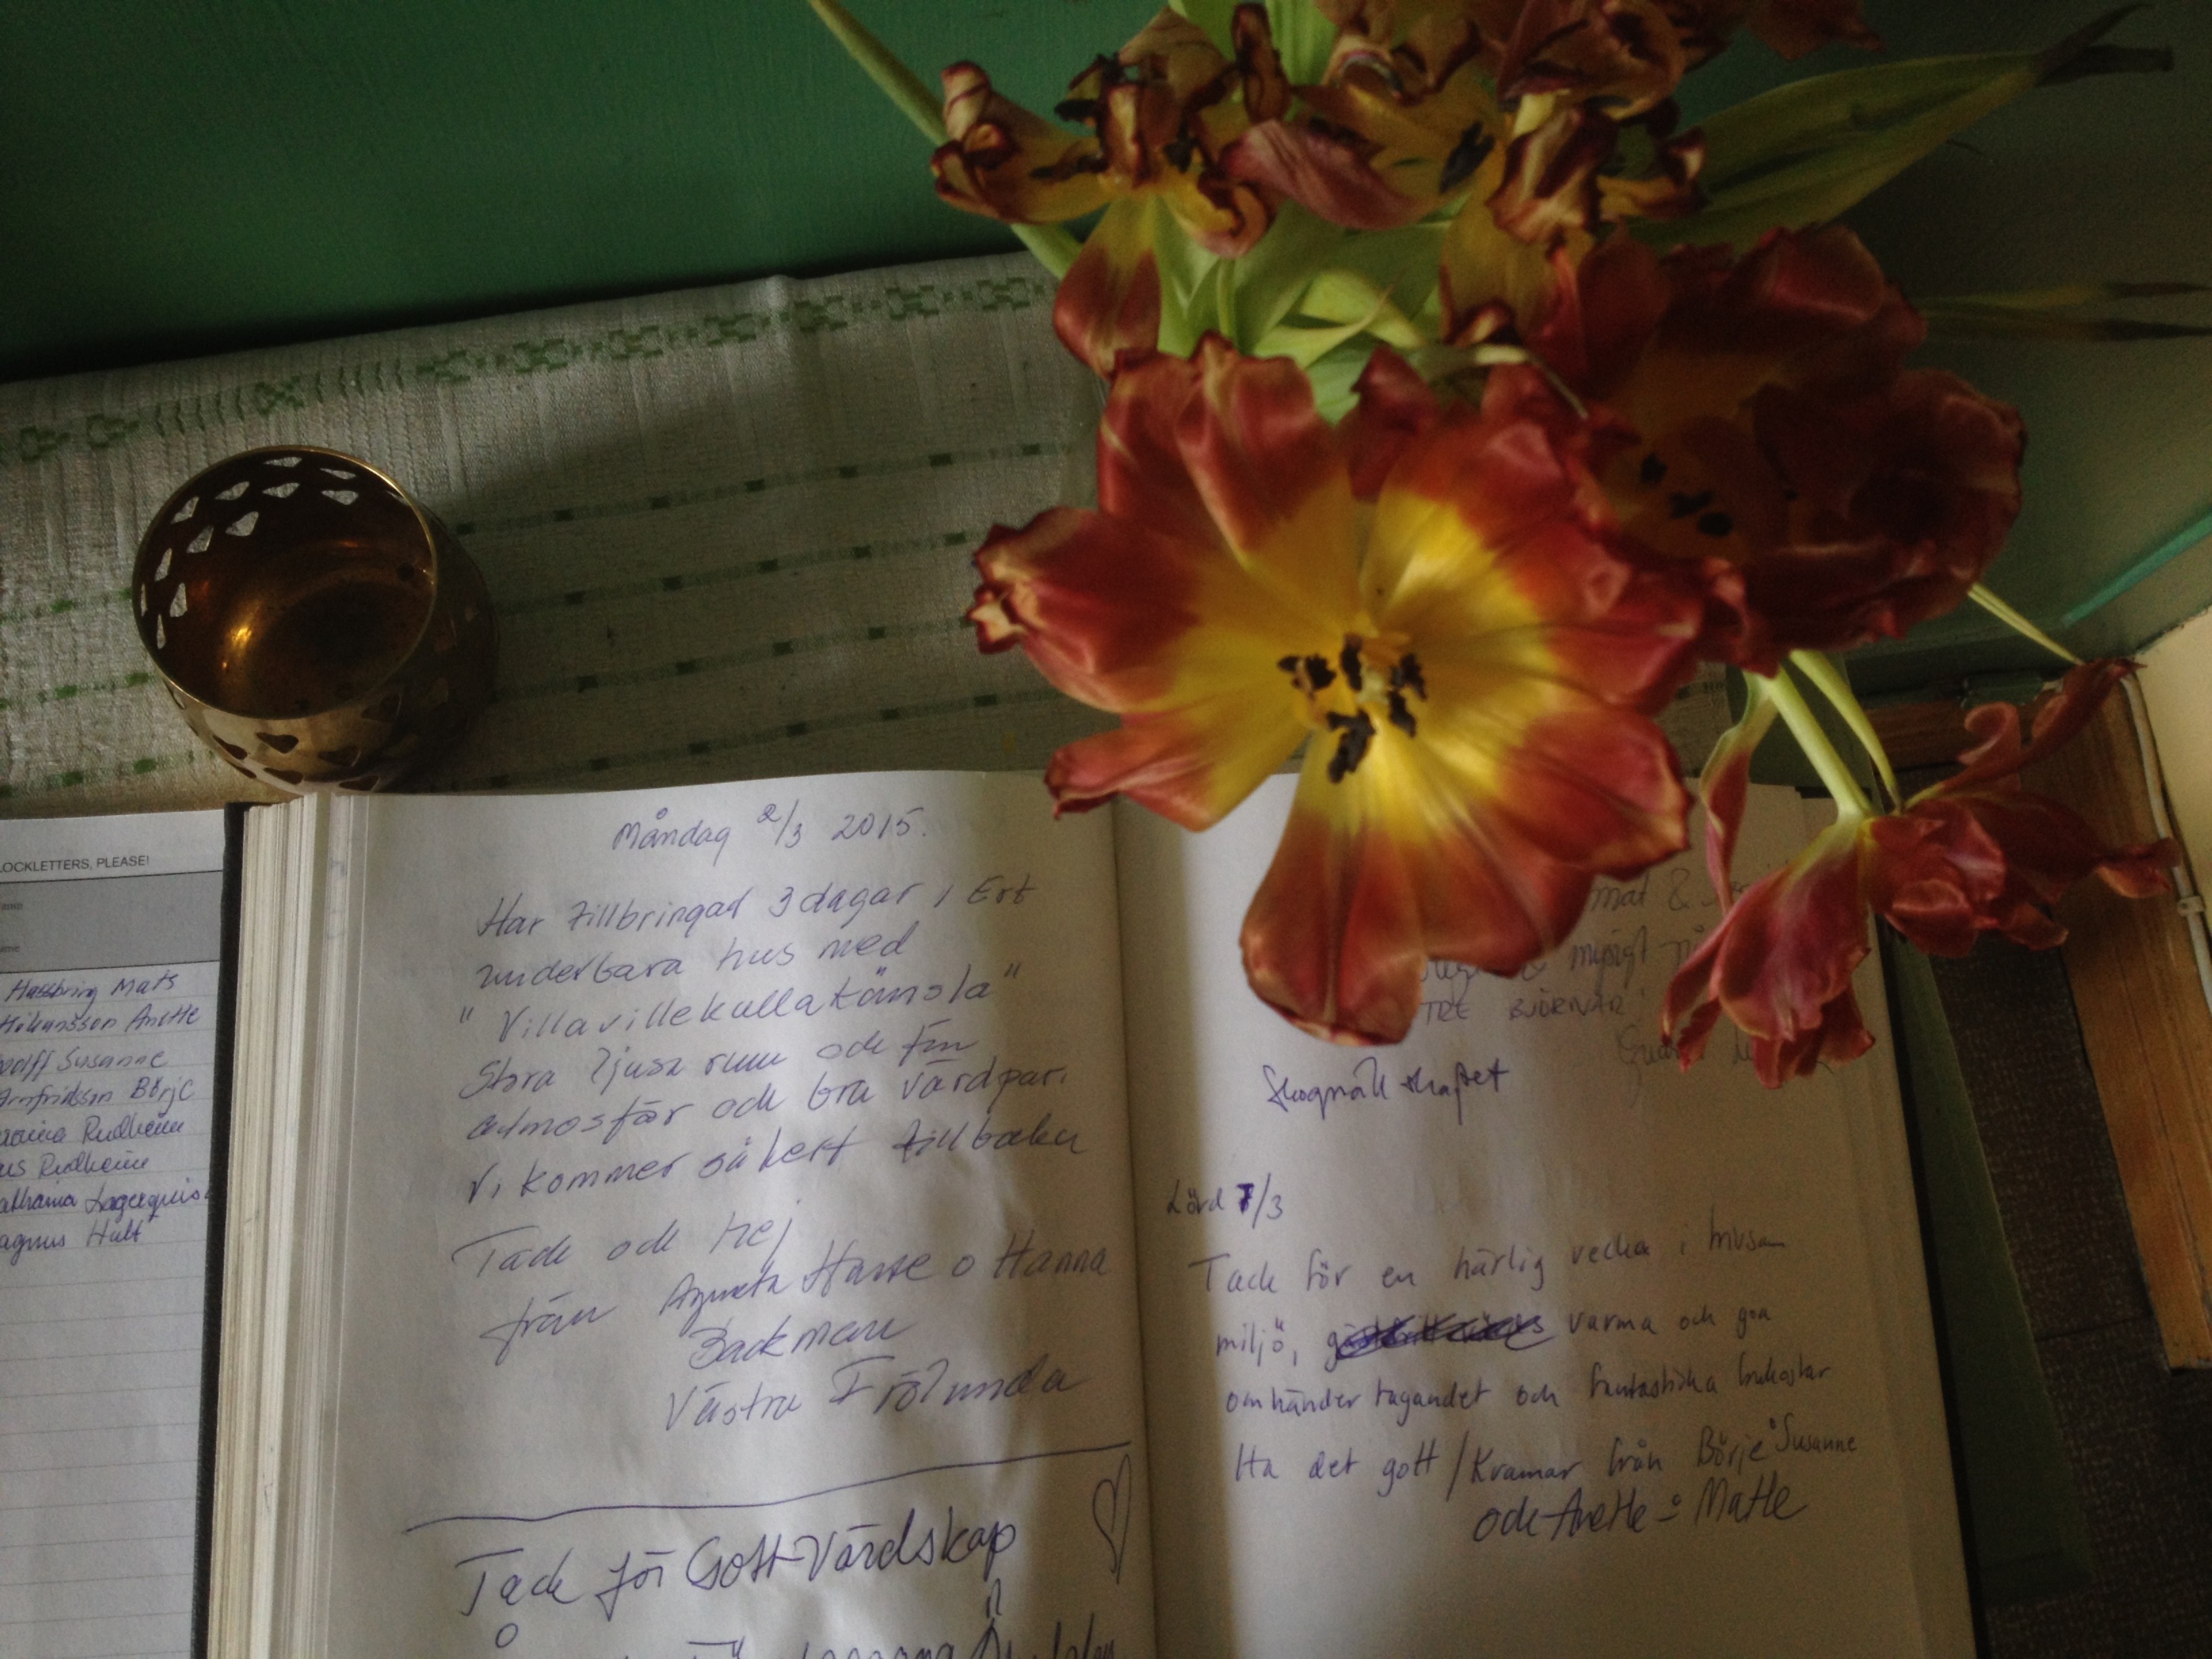 LOCKLETTERS, PLEASE!
Hassbring Mats
Håkansson Anette
Susanne
Arnfridsson Börje
Rudheim
Rudheim
Lagerquis
agnus Hult
Måndag 2/3 2015.
Har tillbringad 3 dagar i Ert
underbara hus med
"Villavillekullakänsla"
Stora ljusa rum och fin
atmosfär och bra värdpar.
Vi kommer säkert tillbaka
Tack och hej
från Agneta Hasse o Hanna
Backman
Västra Frölunda
Tack för Gott Värdskap
mat &
& mysigt
TRE BJÖRNAR
Lörd 7/3
Tack för en härlig vecka i
miljö, varma och goa
omhändertagandet och fantastiska frukostar
Ha det gott / Kramar från Börje å Susanne
och Anette å Matte